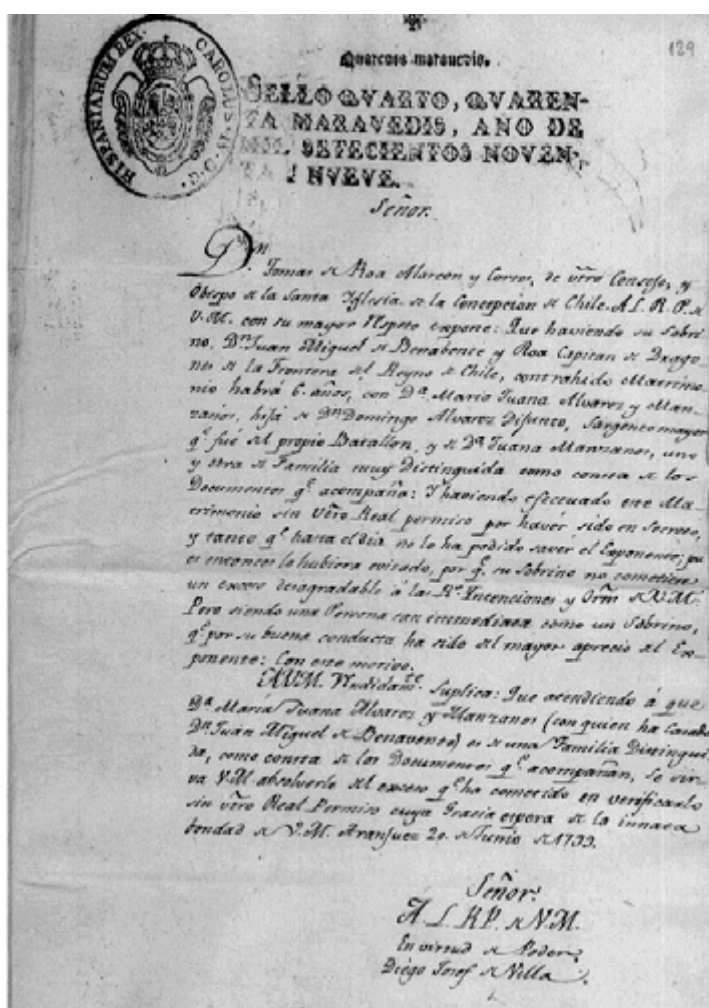 129
Quarenta maravedis.
SELLO QVARTO, QVAREN-
TA MARAVEDIS, AÑO DE
MIL SETECIENTOS NOVEN-
TA I NVEVE.
HISPANIARUM REX CAROLUS IV D G
Señor.
Dn.
Tomas de Roa Alarcon y Cortes, de vtro Consejo, y
Obispo de la Santa Yglesia de la Concepcion de Chile. A.L.R.P. de
V.M. con su mayor respeto expone: Que haviendo su Sobri-
no Dn. Juan Miguel de Benabente y Roa Capitan de Drago-
nes de la Frontera del Reyno de Chile, contrahido Matrimo-
nio habrá 6. años, con Da. Maria Juana Alvares y Man-
zanos, hija de Dn. Domingo Alvares Difunto, Sargento mayor
qe. fué del propio Batallon, y de Da. Juana Manzanos, uno
y otra de Familia muy Distinguida como consta de los
Documentos qe. acompaña: Y haviendo efectuado este Ma-
trimonio sin vtro Real permiso por haver sido en Secreto,
y tanto qe. hasta el dia no lo ha podido saver el Exponente; pu
es entonces lo hubiera evitado, por qe. su Sobrino no cometiese
un exceso desagradable á las Rs. Intenciones y Orns de V.M.
Pero siendo una Persona tan inmediata como un Sobrino,
qe. por su buena conducta ha sido del mayor aprecio del Ex-
ponente: Con este motivo.
A V.M. Rendidamte. Suplica: Que atendiendo á que
Da. María Juana Alvares y Manzanos (con quien ha Casado
Dn. Juan Miguel de Benavente) es de una Familia Distingui
da, como consta de los Documentos qe. acompañan, se sir-
va V.M. absolverle del exceso qe. ha cometido en verificarlo
sin vtro Real Permiso cuya Gracia espera de la innata
bondad de V.M. Aranjuez 20. de Junio de 1799.
Señor.
A. L. R. P. de V. M.
En virtud de Poder,
Diego Josef de Villa.